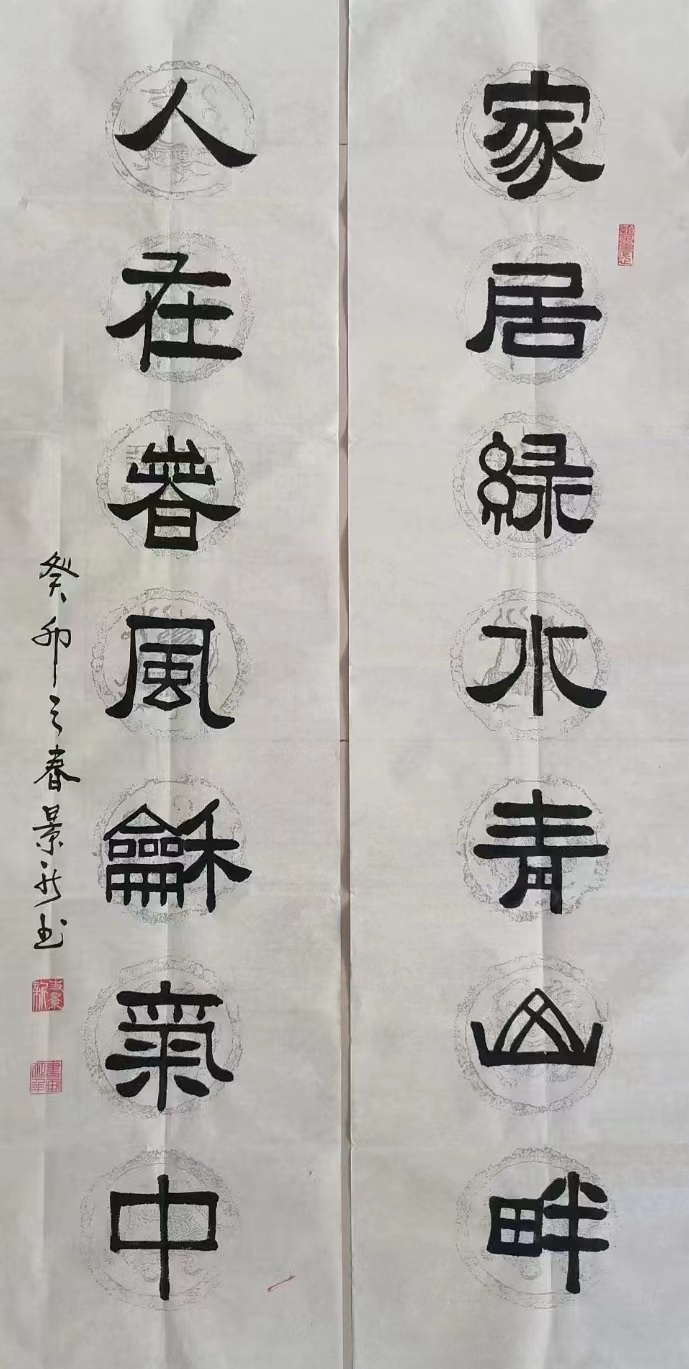 家居緑水青山畔
人在春風龢氣中
癸卯之春景新书